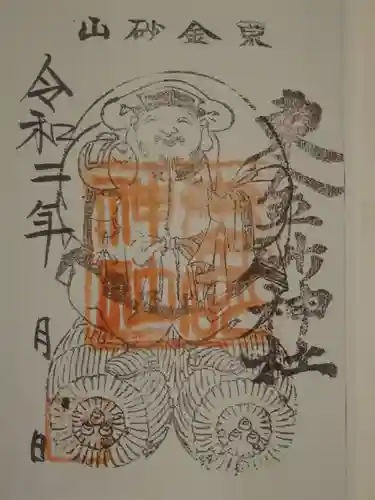 東金砂山
東金砂神社
令和二年 月 日